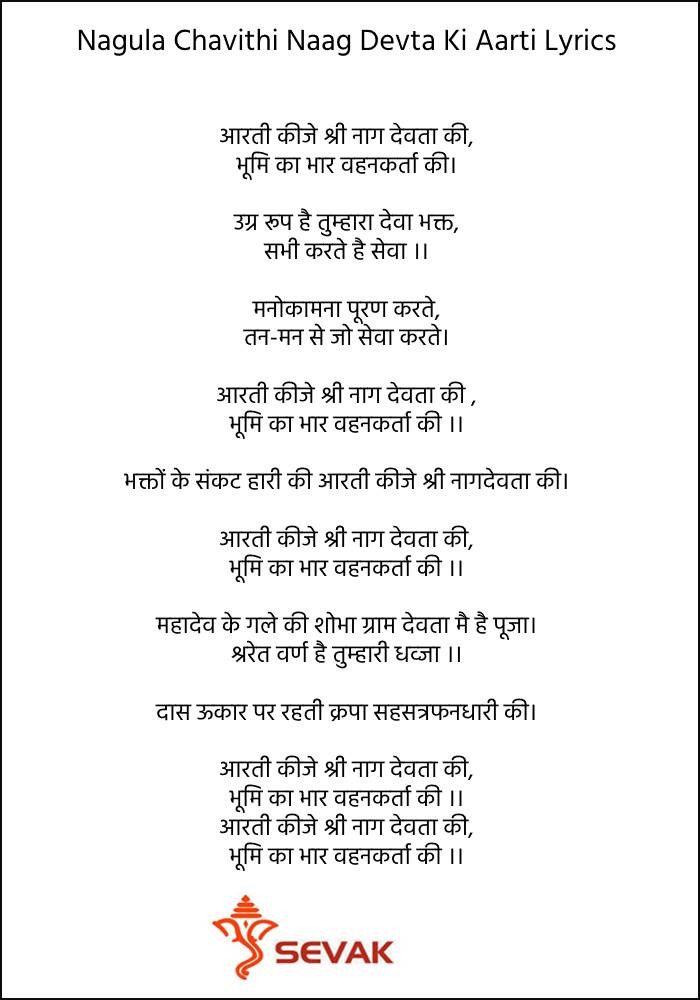 Nagula Chavithi Naag Devta Ki Aarti Lyrics
आरती कीजे श्री नाग देवता की,
भूमि का भार वहनकर्ता की।
उग्र रूप है तुम्हारा देवा भक्त,
सभी करते है सेवा ।।
मनोकामना पूरण करते,
तन-मन से जो सेवा करते।
आरती कीजे श्री नाग देवता की ,
भूमि का भार वहनकर्ता की ।।
भक्तों के संकट हारी की आरती कीजे श्री नागदेवता की।
आरती कीजे श्री नाग देवता की,
भूमि का भार वहनकर्ता की ।।
महादेव के गले की शोभा ग्राम देवता मै है पूजा।
श्ररेत वर्ण है तुम्हारी धव्जा ।।
दास ऊकार पर रहती क्रपा सहसत्रफनधारी की।
आरती कीजे श्री नाग देवता की,
भूमि का भार वहनकर्ता की ।।
आरती कीजे श्री नाग देवता की,
भूमि का भार वहनकर्ता की ।।
SEVAK